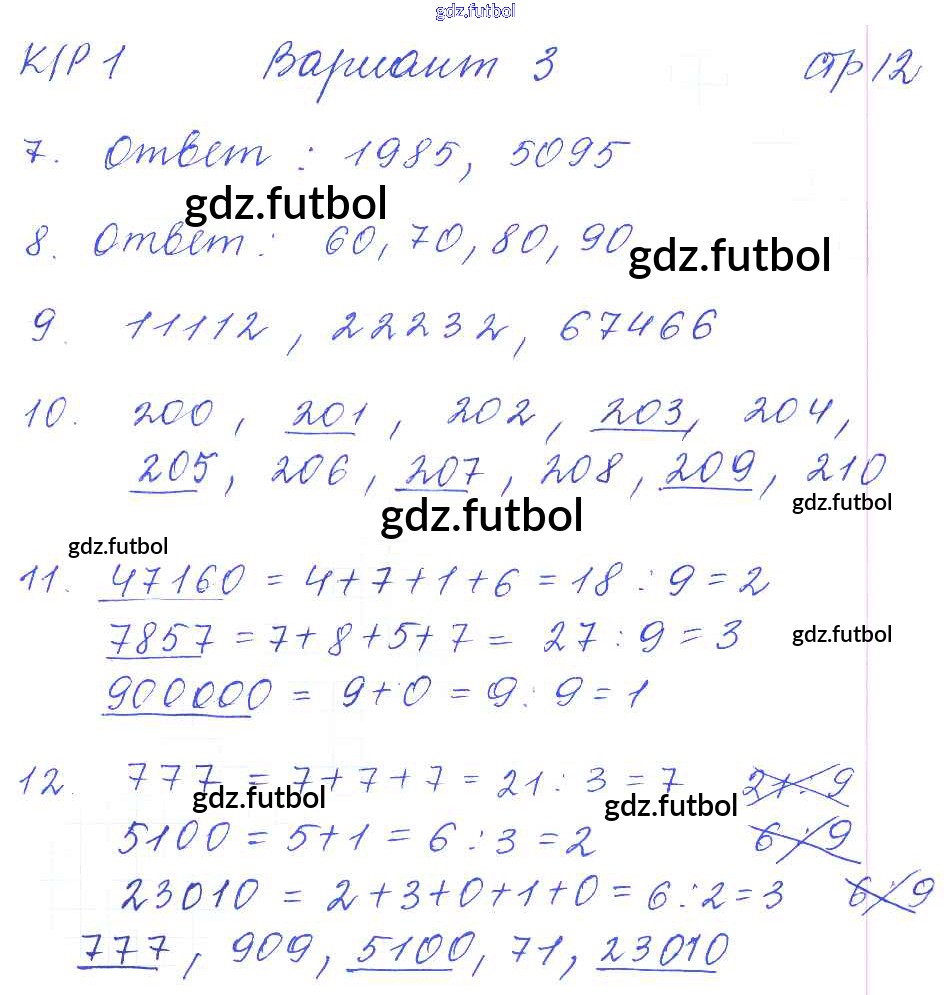 gdz.futbol
К/Р 1 Вариант 3 стр 12
7. Ответ : 1985, 5095
gdz.futbol
8. Ответ : 60, 70, 80, 90
gdz.futbol
9. 11112, 22232, 67466
10. 200, 201, 202, 203, 204,
205, 206, 207, 208, 209, 210
gdz.futbol
gdz.futbol
gdz.futbol
11. 47160 = 4+7+1+6 = 18 : 9 = 2
7857 = 7+8+5+7 = 27 : 9 = 3
gdz.futbol
900000 = 9+0 = 9 : 9 = 1
12. 777 = 7+7+7 = 21 : 3 = 7 21 : 9
gdz.futbol
gdz.futbol
5100 = 5+1 = 6 : 3 = 2 6 : 9
23010 = 2+3+0+1+0 = 6 : 2 = 3 6 : 9
777, 909, 5100, 71, 23010